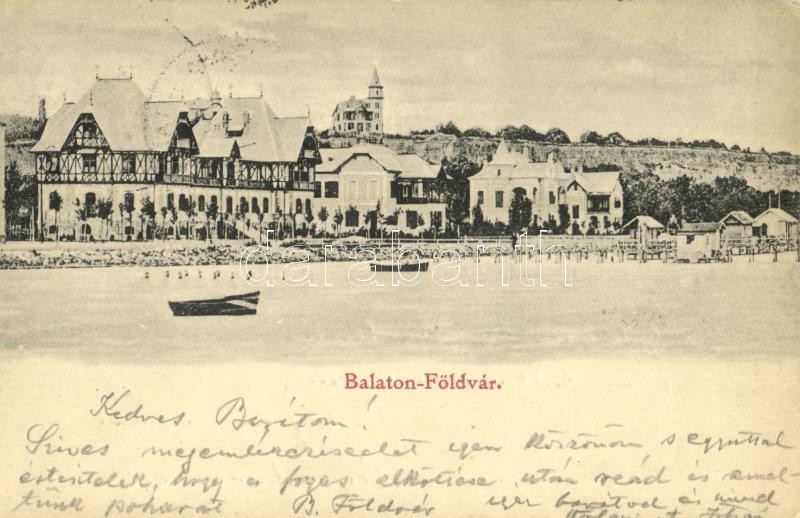 darabanth
Balaton-Földvár.
Kedves Barátom!
Szives megemlékezésedet igen köszönöm s egyuttal
értesitelek, hogy a fogas elköltése után reád is emel-
tünk poharat B. Földvár igen baráttal és mind